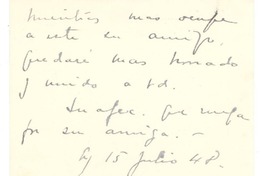 mientras mas ocupe
a este su amigo,
quedaré mas honrado
y unido a Vd.
Su afec. que ruega
por su amiga. —
15 Julio 48.